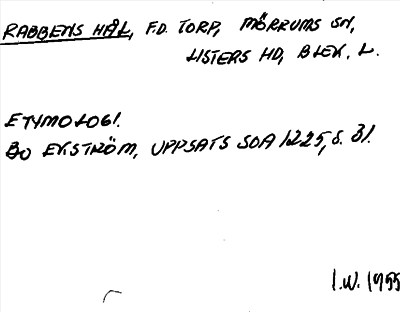 RABBENS HÅL, F.D. TORP, MÖRRUMS SN,
LISTERS HD, BLEK. L.
ETYMOLOGI.
BO EKSTRÖM, UPPSATS SOA 1225, S. 31.
I.W. 1955